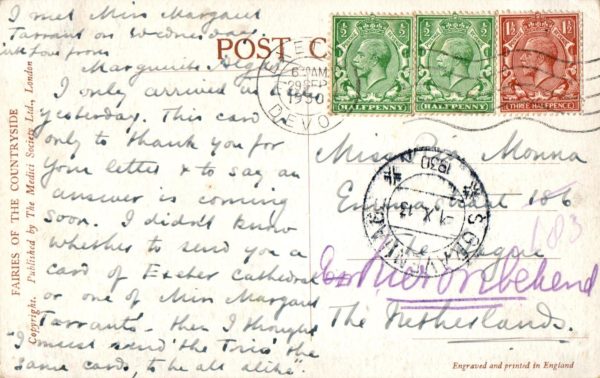 I met Miss Margaret
Tarrant on Wednesday.
with love from
Marguerite
I only arrived
yesterday. This card
only to thank you for
your letter & to say an
answer is coming
soon. I didn't know
whether to send you a
card of Exeter Cathedral
or one of Miss Margaret
Tarrants - then I thought
"I must send 'the Trio' the
same cards, to be all alike".
FAIRIES OF THE COUNTRYSIDE
Copyright. Published by The Medici Society Ltd., London
POST C
EXETER
6 AM
29 SEP
1930
DEVON
HALFPENNY
HALFPENNY
THREE HALFPENCE
Miss Monna
Emmastraat 186
The Hague
The Netherlands.
183
S GRAVENHAGE
1.X.13
1930
onbekend
Engraved and printed in England